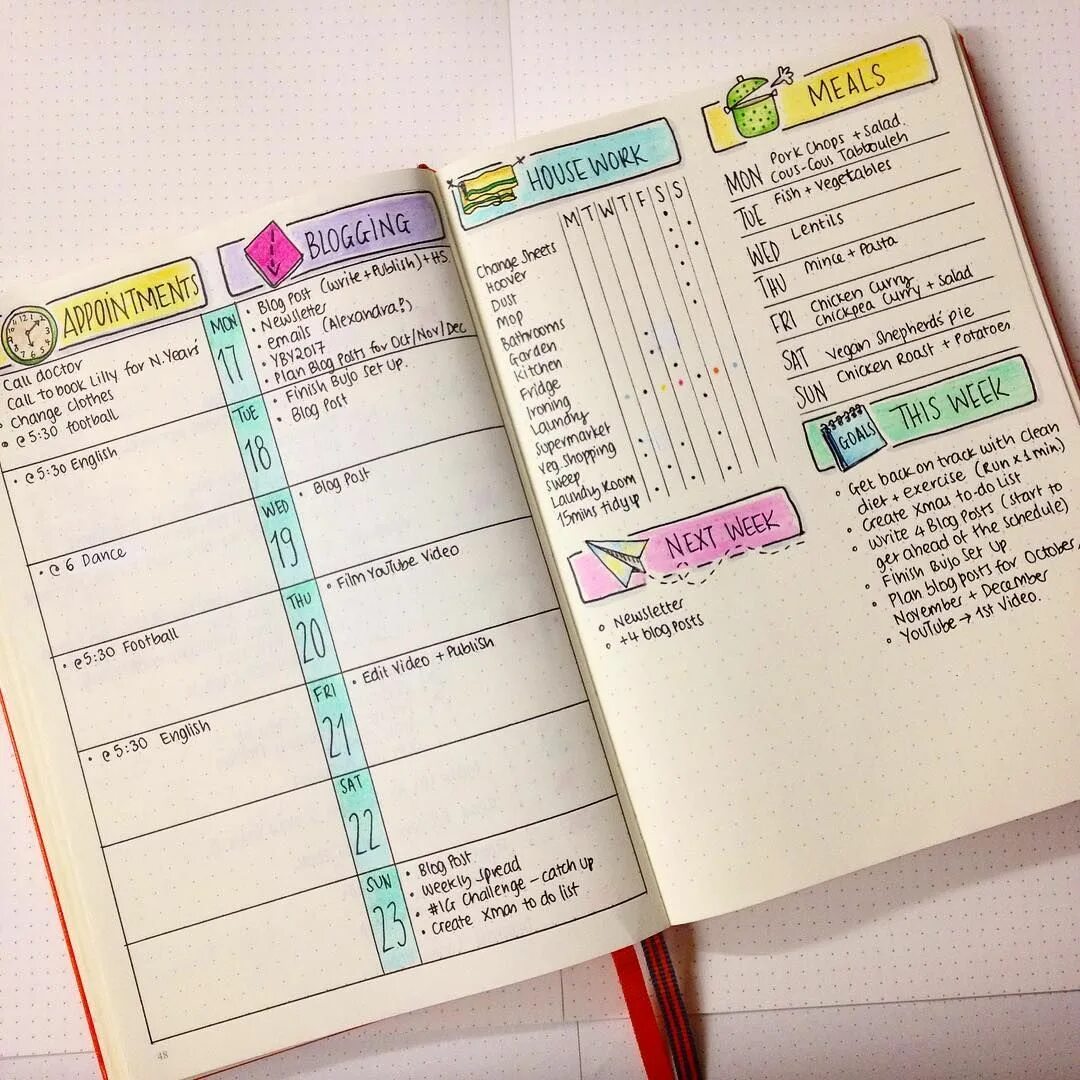 APPOINTMENTS
Call doctor
Call to book Lilly for N.Years'
Change clothes
@ 5:30 football
@ 5:30 English
@ 6 Dance
@ 5:30 Football
@ 5:30 English
MON
17
TUE
18
WED
19
THU
20
FRI
21
SAT
22
SUN
23
BLOGGING
Blog Post (Write + Publish) + HS.
Newsletter
emails (Alexandra?)
YBY2017
Plan Blog Posts for Oct/Nov/Dec
Finish BuJo Set Up.
Blog Post
Blog Post
Film YouTube Video
Edit Video + Publish
Blog Post
Weekly spread
#IG Challenge - catch up
Create Xmas to do list
48
HOUSEWORK
M T W T F S S
Change Sheets
Hoover
Dust
Mop
Bathrooms
Garden
Kitchen
Fridge
Ironing
Laundry
Supermarket
Veg. Shopping
Sweep
Laundry Room
15mins tidy up
NEXT WEEK
Newsletter
+4 blog posts
MEALS
MON Pork Chops + Salad.
Cous-Cous Tabbouleh
TUE Fish + Vegetables
WED Lentils
THU Mince + Pasta
FRI Chicken Curry
Chickpea Curry + salad
SAT Vegan Shepherd's pie
SUN Chicken Roast + Potatoes
GOALS
THIS WEEK
Get back on track with clean
diet + exercise (Run x 1 min)
Create Xmas to-do List
Write 4 Blog Posts (start to
get ahead of the schedule)
Finish BuJo Set Up
Plan blog posts for October,
November + December
YouTube → 1st Video.